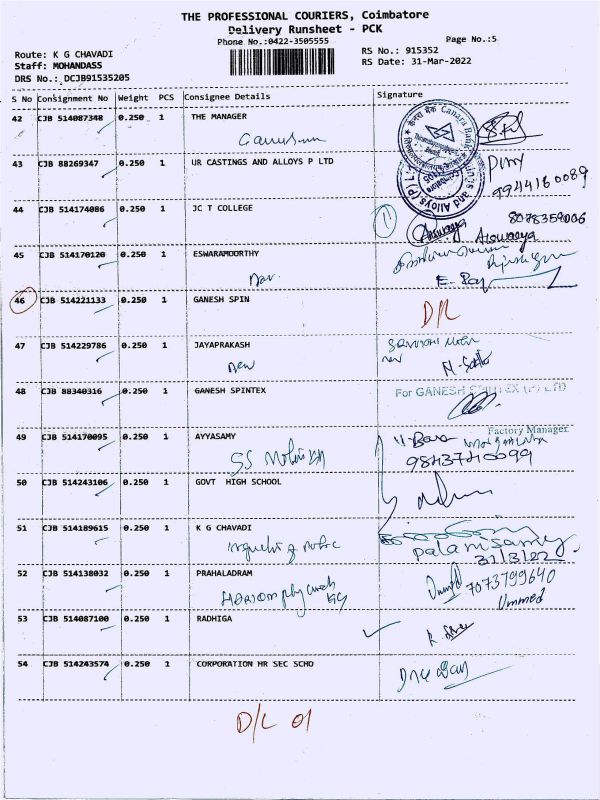 THE PROFESSIONAL COURIERS, Coimbatore
Delivery Runsheet - PCK
Phone No.:0422-3505555
Page No.:5
Route: K G CHAVADI
RS No.: 915352
Staff: MOHANDASS
RS Date: 31-Mar-2022
DRS No.: DCJB91535205
S No Consignment No Weight PCS Consignee Details Signature
42 CJB 514087348 0.250 1 THE MANAGER
43 CJB 88269347 0.250 1 UR CASTINGS AND ALLOYS P LTD
9944160089
44 CJB 514174086 0.250 1 JC T COLLEGE
8078359006
45 CJB 514170120 0.250 1 ESWARAMOORTHY
46 CJB 514221133 0.250 1 GANESH SPIN
D/L
47 CJB 514229786 0.250 1 JAYAPRAKASH
48 CJB 88340316 0.250 1 GANESH SPINTEX
For GANESH SPINTEX (P) LTD
Factory Manager
49 CJB 514170095 0.250 1 AYYASAMY
9843740099
50 CJB 514243106 0.250 1 GOVT HIGH SCHOOL
51 CJB 514189615 0.250 1 K G CHAVADI
palanisamy
31/3/22
52 CJB 514138032 0.250 1 PRAHALADRAM
7073799640
Ummed
53 CJB 514087100 0.250 1 RADHIGA
54 CJB 514243574 0.250 1 CORPORATION HR SEC SCHO
D/L 01